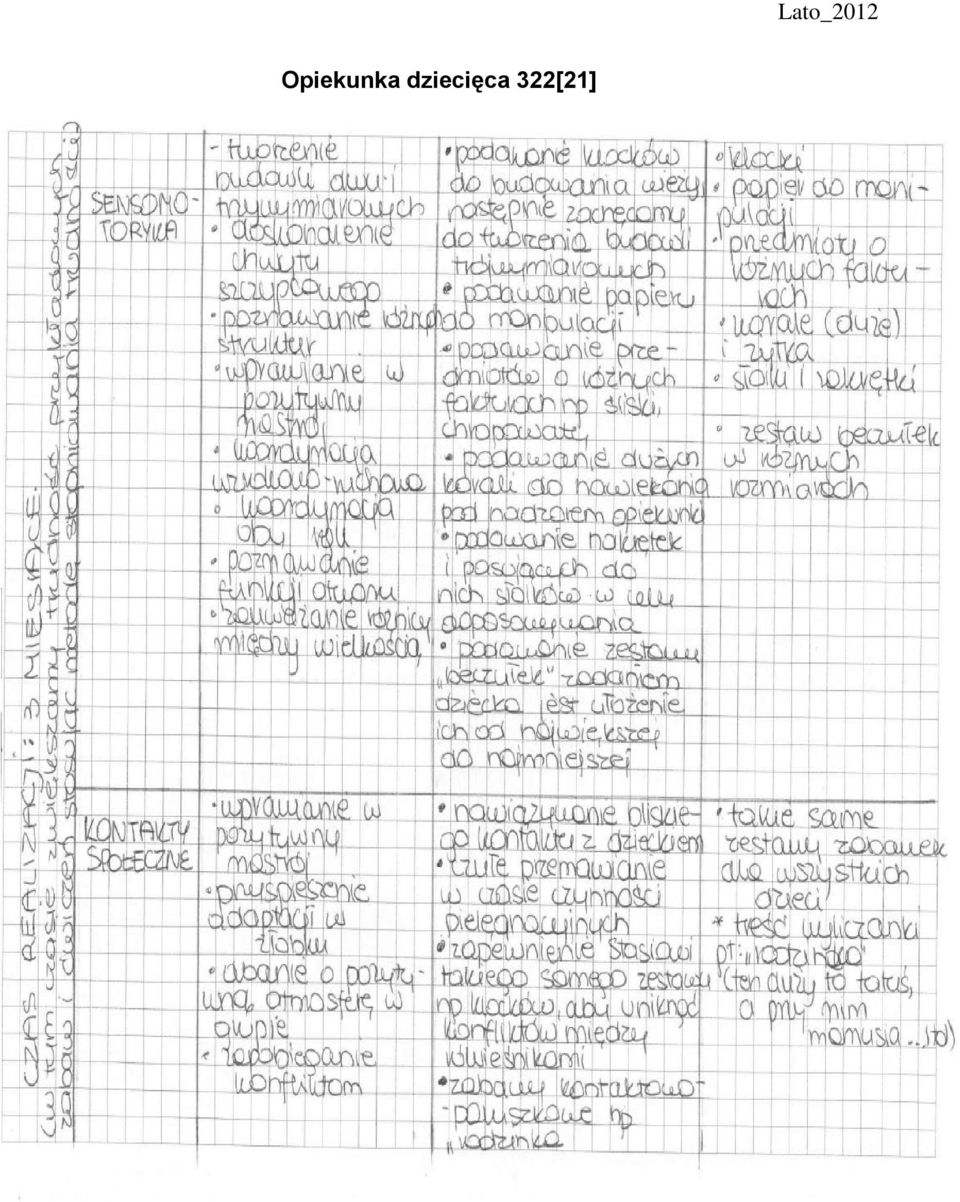 Lato_2012
Opiekunka dziecięca 322[21]
CZAS REALIZACJI: 3 MIESIĄCE.
(w tym czasie zwiększamy trudność przykładowych
zabaw i ćwiczeń stosując metodę stopniowania trudności)
SENSOMO-
TORYKA
- tworzenie
budowli dwu i
trzywymiarowych
• doskonalenie
chwytu
szczypcowego
• poznawanie różnych
struktur
• wprawianie w
pozytywny
nastrój
• koordynacja
wzrokowo-ruchowa
• koordynacja
obu rąk
• poznawanie
funkcji otworu
• zauważanie różnicy
między wielkością
• podawanie klocków
do budowania wieży,
następnie zachęcamy
do tworzenia budowli
trójwymiarowych
• podawanie papieru
do manipulacji
• podawanie prze-
dmiotów o różnych
fakturach np śliski,
chropowate,
• podawanie dużych
korali do nawlekania
pod nadzorem opiekunki
• podawanie nakrętek
i pasujących do
nich słoików w celu
dopasowywania
• podawanie zestawu
„beczułek" zadaniem
dziecka jest ułożenie
ich od największej
do najmniejszej
• klocki
• papier do mani-
pulacji
• przedmioty o
różnych faktu-
rach
• korale (duże)
i żyłka
• słoiki i zakrętki
• zestaw beczułek
w różnych
rozmiarach
KONTAKTY
SPOŁECZNE
• wprawianie w
pozytywny
nastrój
• przyspieszenie
adaptacji w
żłobku
• dbanie o pozyty-
wną atmosferę w
grupie
• zapobieganie
konfliktom
• nawiązywanie bliskie-
go kontaktu z dzieckiem
• czułe przemawianie
w czasie czynności
pielęgnacyjnych
• zapewnienie Stasiowi
takiego samego zestawu
np klocków, aby uniknąć
konfliktów między
rówieśnikami
• zabawy kontaktowo-
-paluszkowe np
„rodzinka
• takie same
zestawy zabawek
dla wszystkich
dzieci
* treść wyliczanki
pt: „rodzinka"
(ten duży to tatuś,
a przy nim
mamusia...itd)